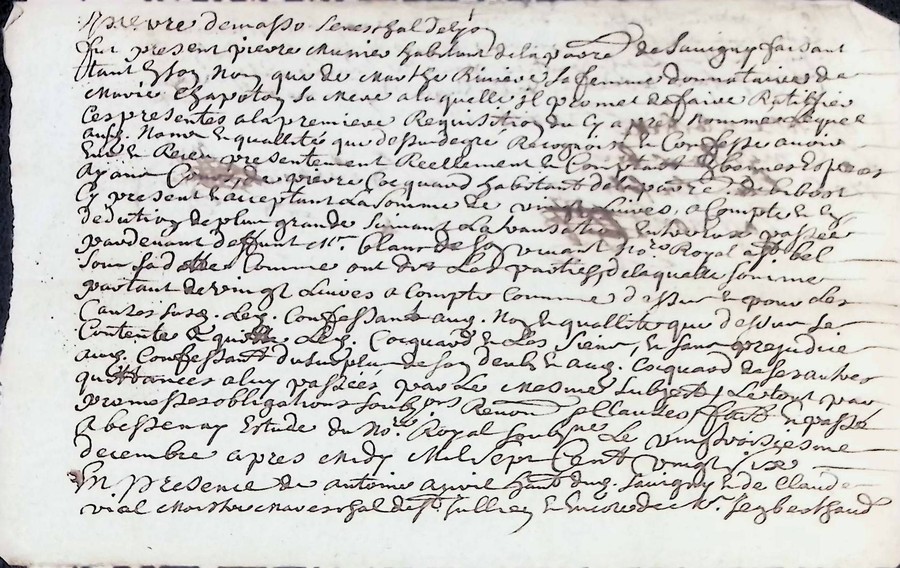 pierre demasso Seneschal de Lyon
fut present pierre Munier habitant de la parre de Savigny faisant
tant en son Nom que de Marthe Riviere Sa femme donnataire de
Marie Chapoton Sa Mere a laquelle il promet de faire Ratiffier
Ces presentes a la premiere Requisition du Cy apres Nomme Lequel
auq. Noms & quallité que dessus de gré Recognoist & Confesse avoir
Eu & Receu presentement Reellement & Contant En bonnes Especes
ayans Cours de pierre Cocquard habitant de la parre de
Cy present & acceptant La Somme de vingt Livres, a Compte & en
deduction de plus grande Suivant La transaction Entre eux passée
pardevant deffunt Mr. blanc de Son vivant No.re Royal
Sous sa datte Comme ont dit Les parties, de laquelle Somme
partant de vingt Livres a Compte Comme dessus & pour Les
Causes susd. Led. Confessant auq. Nom & quallité que dessus Se
Contente & quitte Led. Cocquard & Les Siens, & Sans prejudice
aud. Confessant du Surplus de Son deub & aud. Cocquard de Ses autres
quittances a luy passées par Le Mesme Subject, Le tout par
promesses obligations Soubz.ons Renon. & Clauses fait & passé
a bessenay Estude du No.re Royal Soubz.ne Le vingt troisiesme
decembre apres Midy Mil Sept Cent vingt Six
En presence de antoine habt. dud. Savigny & de Claude
vial Maistre Mareschal de St. Jullien & Encore de Mr.